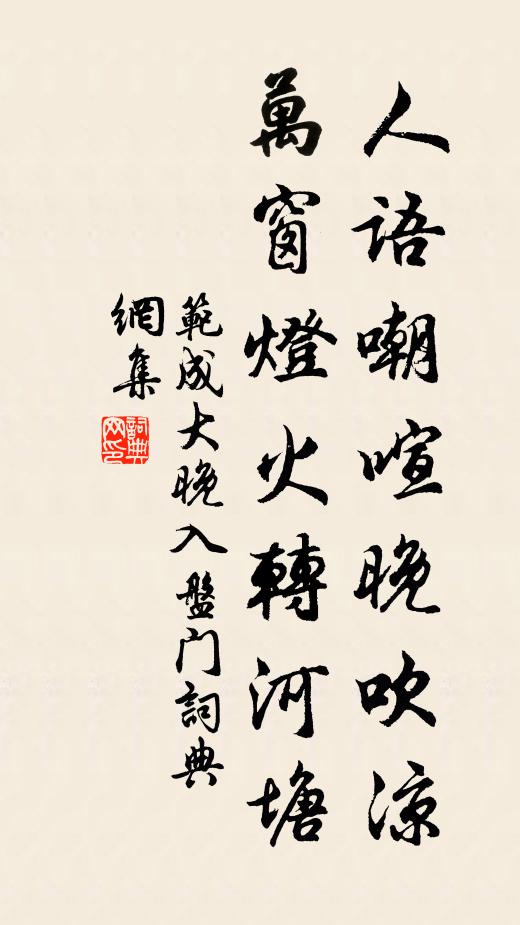 人語嘲喧晚吹凉
萬窗燈火轉河塘
範成大晚入盤门詞典
網集
詞典网印